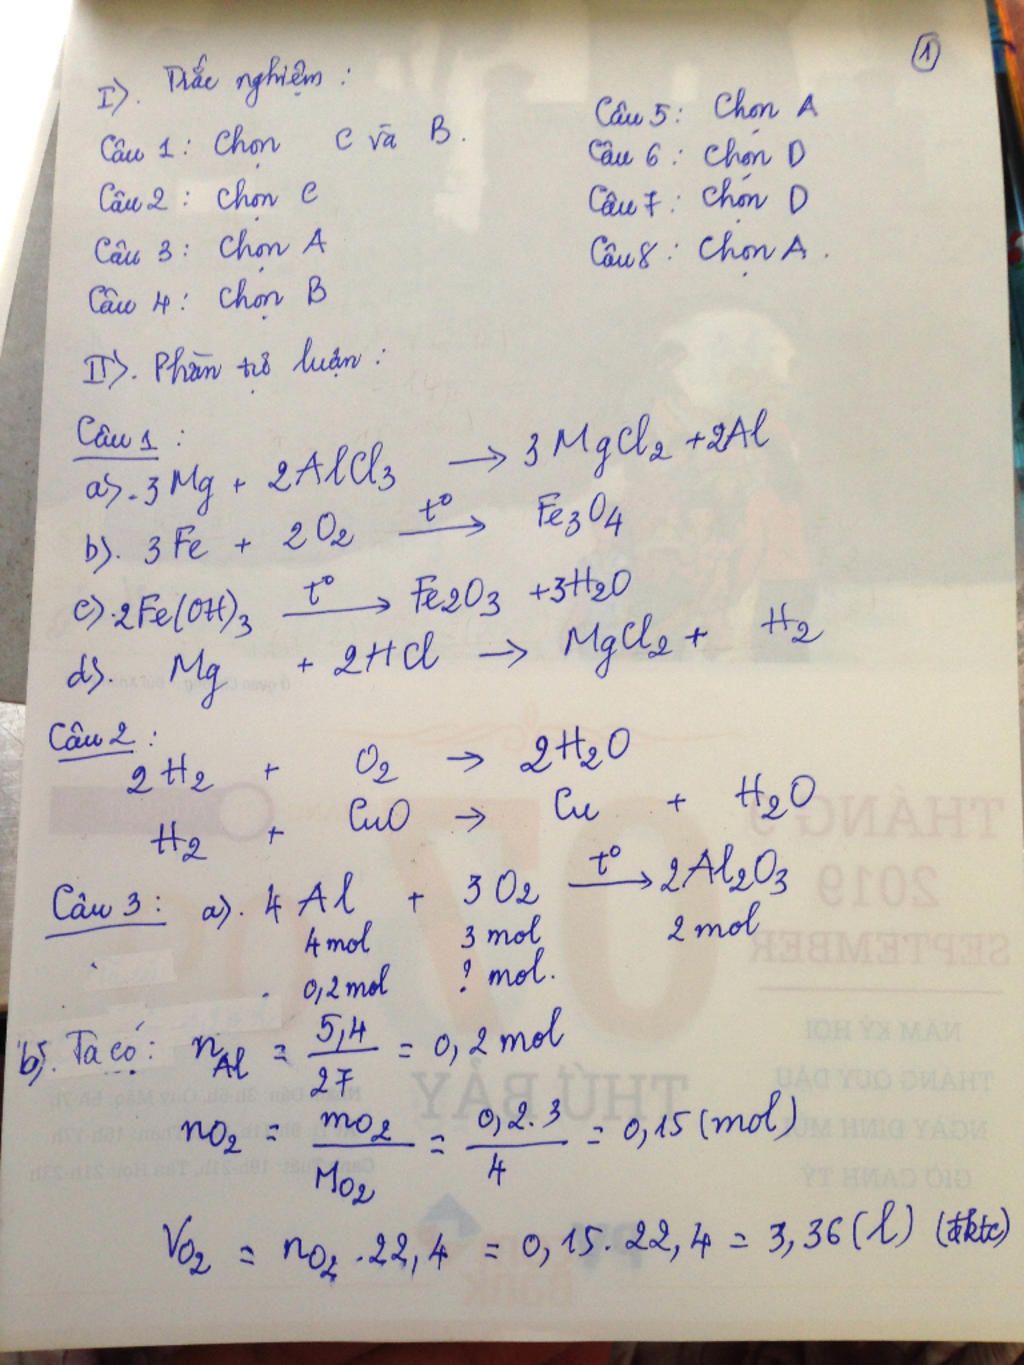 1
I). Trắc nghiệm :
Câu 1 : Chọn C và B.
Câu 2 : Chọn C
Câu 3 : Chọn A
Câu 4 : Chọn B
Câu 5 : Chọn A
Câu 6 : Chọn D
Câu 7 : Chọn D
Câu 8 : Chọn A.
II). Phần tự luận :
Câu 1 :
a). 3Mg + 2AlCl₃ → 3MgCl₂ + 2Al
b). 3Fe + 2O₂ t° → Fe₃O₄
c). 2Fe(OH)₃ t° → Fe₂O₃ + 3H₂O
d). Mg + 2HCl → MgCl₂ + H₂
Câu 2 :
2H₂ + O₂ → 2H₂O
H₂ + CuO → Cu + H₂O
Câu 3 : a). 4Al + 3O₂ t° → 2Al₂O₃
4mol 3 mol 2 mol
0,2mol ? mol.
b). Ta có : nAl = 5,4/27 = 0,2mol
nO₂ = mO₂/MO₂ = 0,2.3/4 = 0,15 (mol)
VO₂ = nO₂.22,4 = 0,15.22,4 = 3,36 (l) (đktc)
THÁNG 9
2019
SEPTEMBER
07
NĂM KỶ HỢI
THÁNG QUÝ DẬU
THỨ BẢY